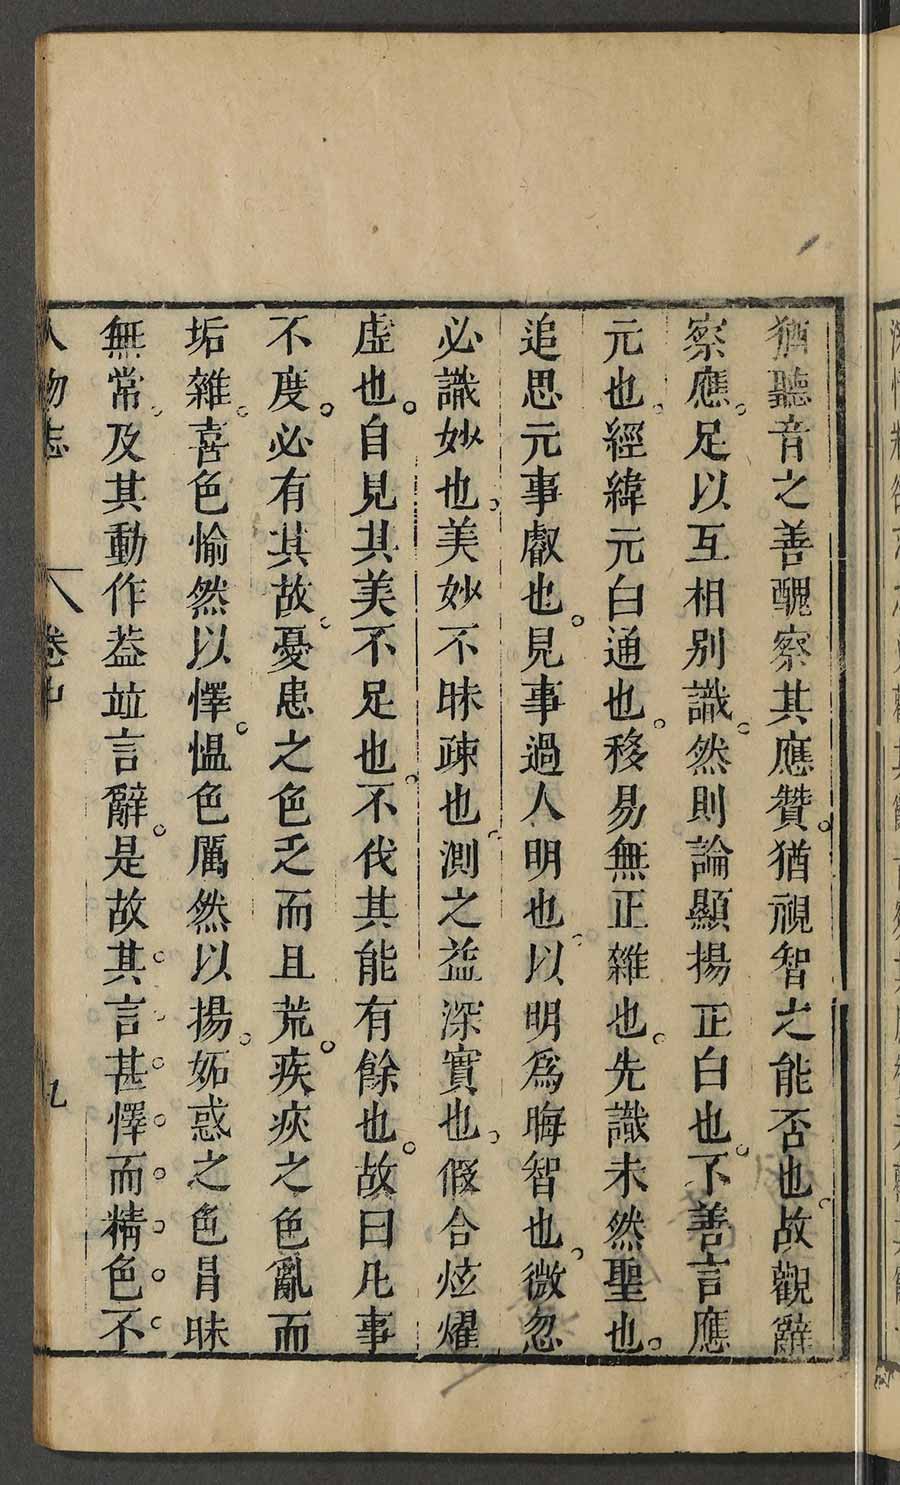 猶聽音之善醜察其應贊猶視智之能否也故觀辭
察應足以互相別識然則論顯揚正白也不善言應
元也經緯元白通也移易無正雜也先識未然聖也
追思元事叡也見事過人明也以明爲晦智也微忽
必識妙也美妙不昧疎也測之益深實也假合炫燿
虛也自見其美不足也不伐其能有餘也故曰凡事
不度必有其故憂患之色乏而且荒疾疢之色亂而
垢雜喜色愉然以懌慍色厲然以揚妬惑之色冒昧
無常及其動作葢竝言辭是故其言甚懌而精色不
人物志 卷中 九